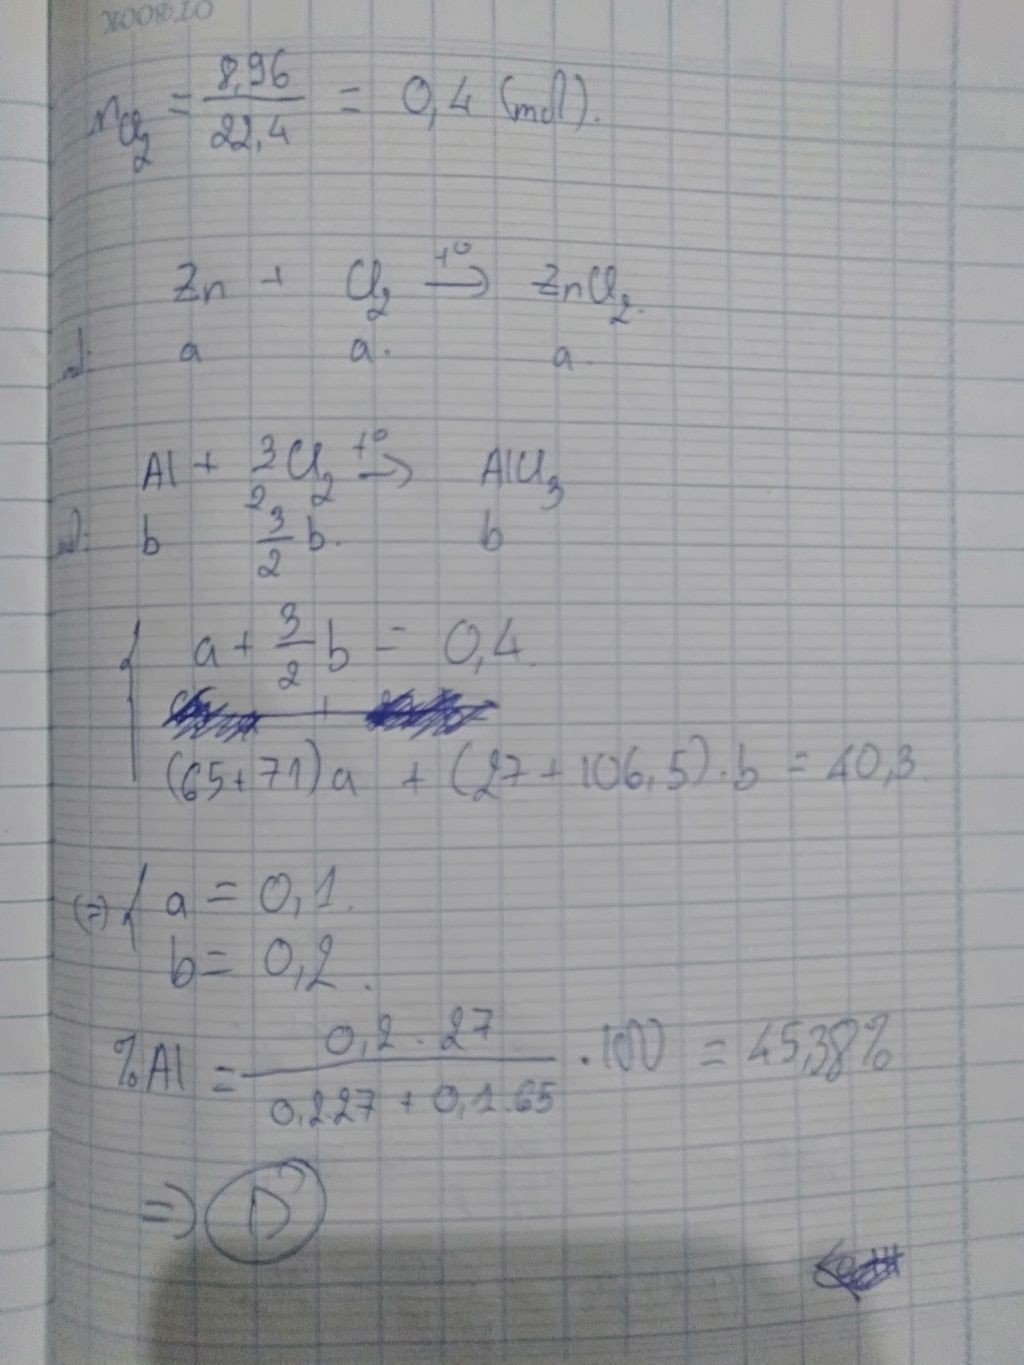 nCl₂ = 8,96/22,4 = 0,4 (mol).
Zn + Cl₂ →(t⁰) ZnCl₂.
a a. a.
Al + 3/2 Cl₂ →(t⁰) AlCl₃
b 3/2 b. b
{ a + 3/2 b = 0,4.
(65+71)a + (27+106,5).b = 40,3
(=) { a = 0,1.
b = 0,2.
%Al = 0,2.27/0,2.27 + 0,1.65 .100 = 45,38%
=> D